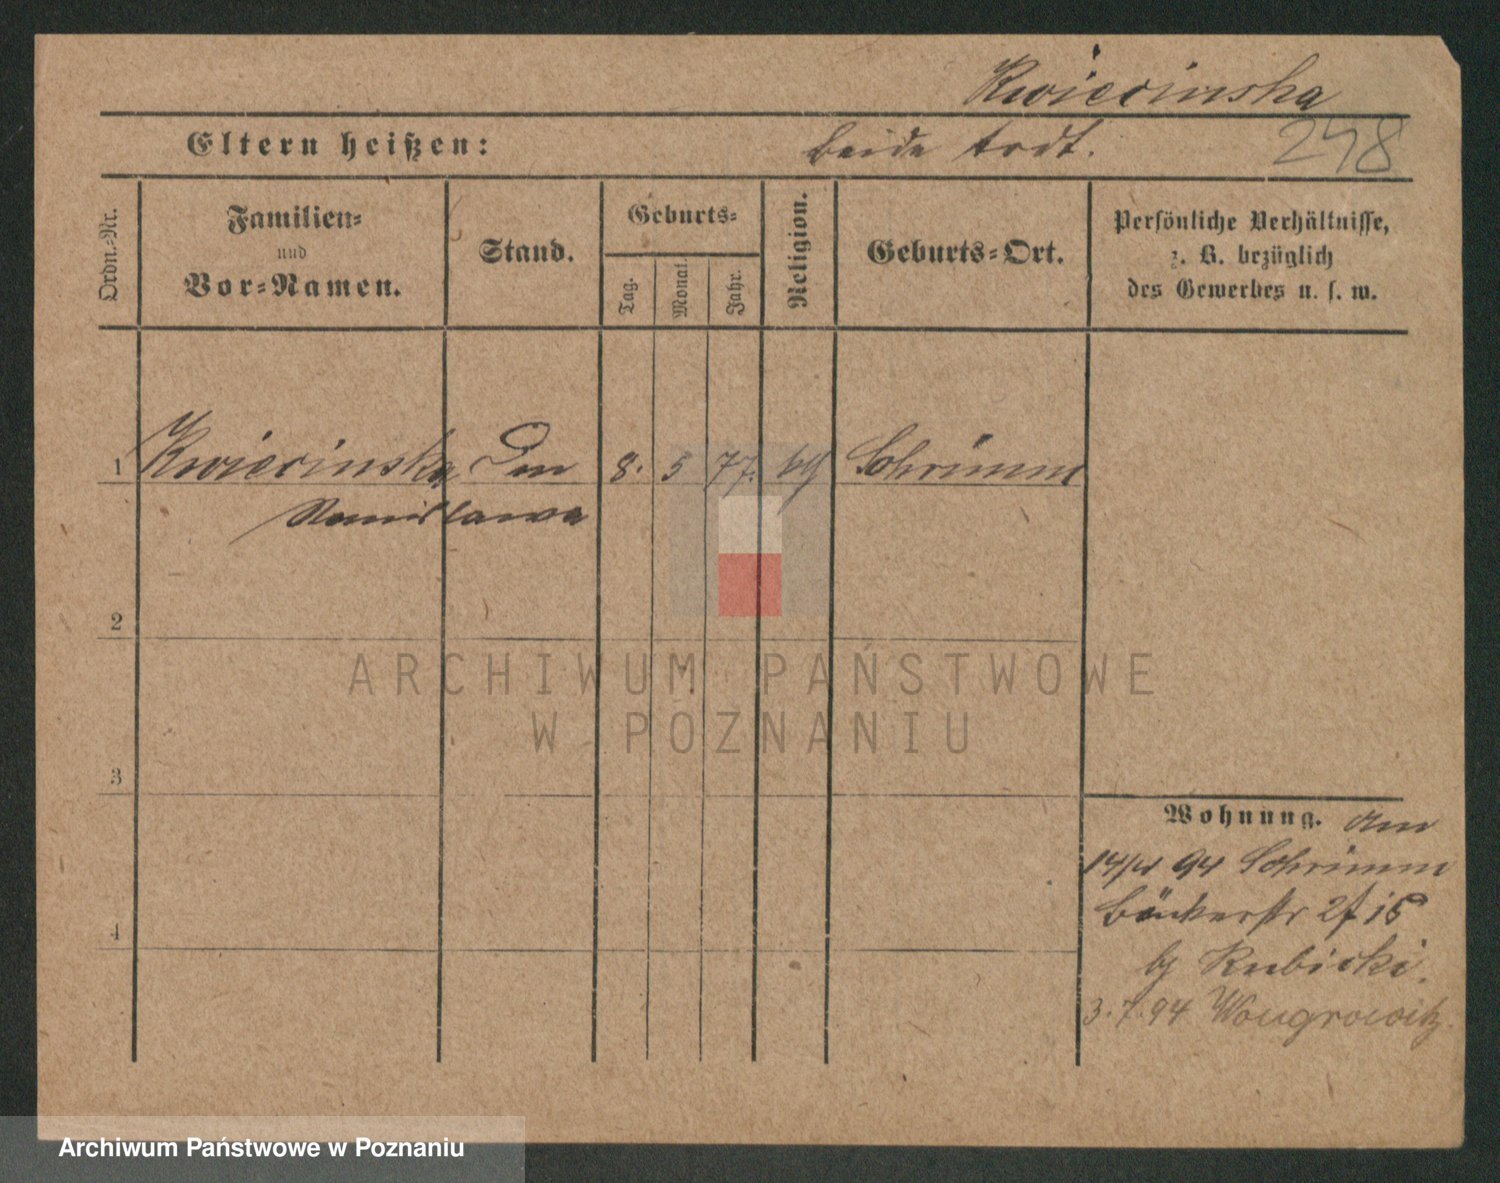 Kwiecinska
Eltern heißen: beide todt.
248
Ordn.=Nr.
Familien=
und
Vor=Namen.
Stand.
Geburts=
Tag.
Monat.
Jahr.
Religion.
Geburts=Ort.
Persönliche Verhältnisse,
z. B. bezüglich
des Gewerbes u. s. w.
1 Kwiecinska 8. 5 77. Schrimm
Stanislawa
2
ARCHIWUM PAŃSTWOWE
W POZNANIU
3
Wohnung. Am
94 Schrimm
Bäckerstr 15
by Rubicki.
4
3.7.94 Wongrowitz
Archiwum Państwowe w Poznaniu